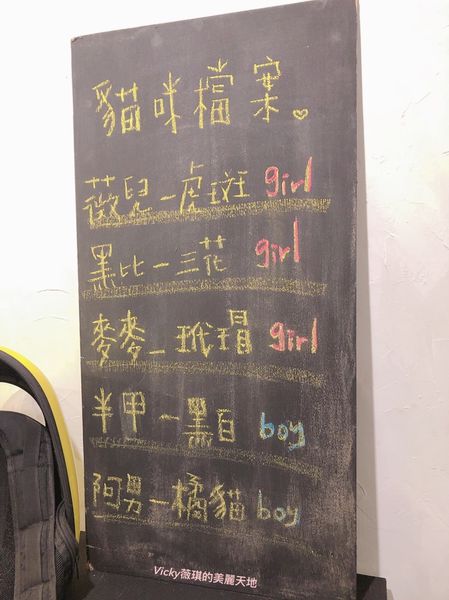 貓咪檔案。
薇兒-虎斑 girl
黑比-三花 girl
麥麥-玳瑁 girl
半甲-黑白 boy
阿男-橘貓 boy
Vicky薇琪的美麗天地